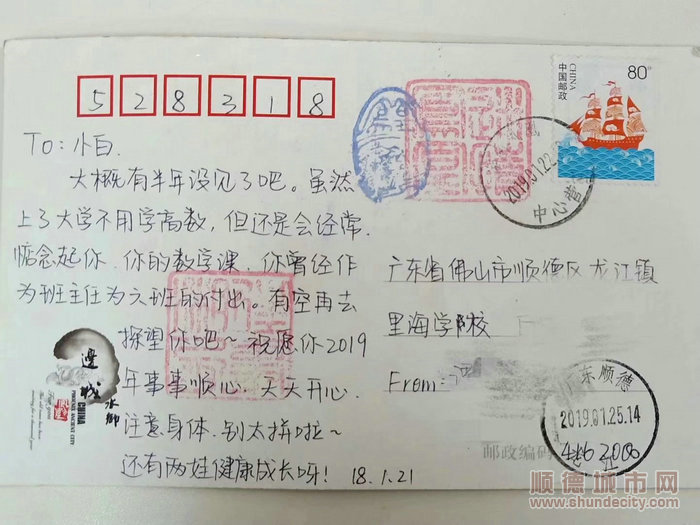 528318
80分
中国邮政
CHINA
To：小白.
大概有半年没见了吧。虽然
上了大学不用学高数，但还是会经常
惦念起你、你的数学课、你曾经作
为班主任为六班的付出。有空再去
探望你吧～祝愿你2019
年事事顺心、天天开心、
注意身体、别太拼啦～
还有两娃健康成长呀！ 18.1.21
2019.01.22
中心营
广东省佛山市顺德区龙江镇
里海学校
From:
广东顺德
2019.01.25.14
龙江
邮政编码
416200
邊城
水鄉
CHINA
顺德城市网
www.shundecity.com